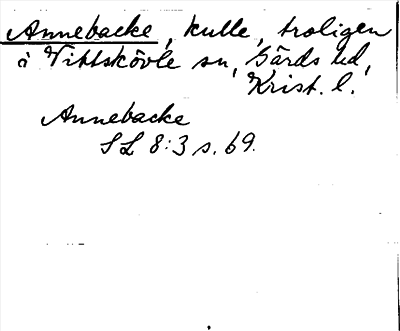 Annebacke, kulle, troligen
i Vittskövle sn, Gärds hd,
Krist. l.
Annebacke
SL 8:3 s. 69.